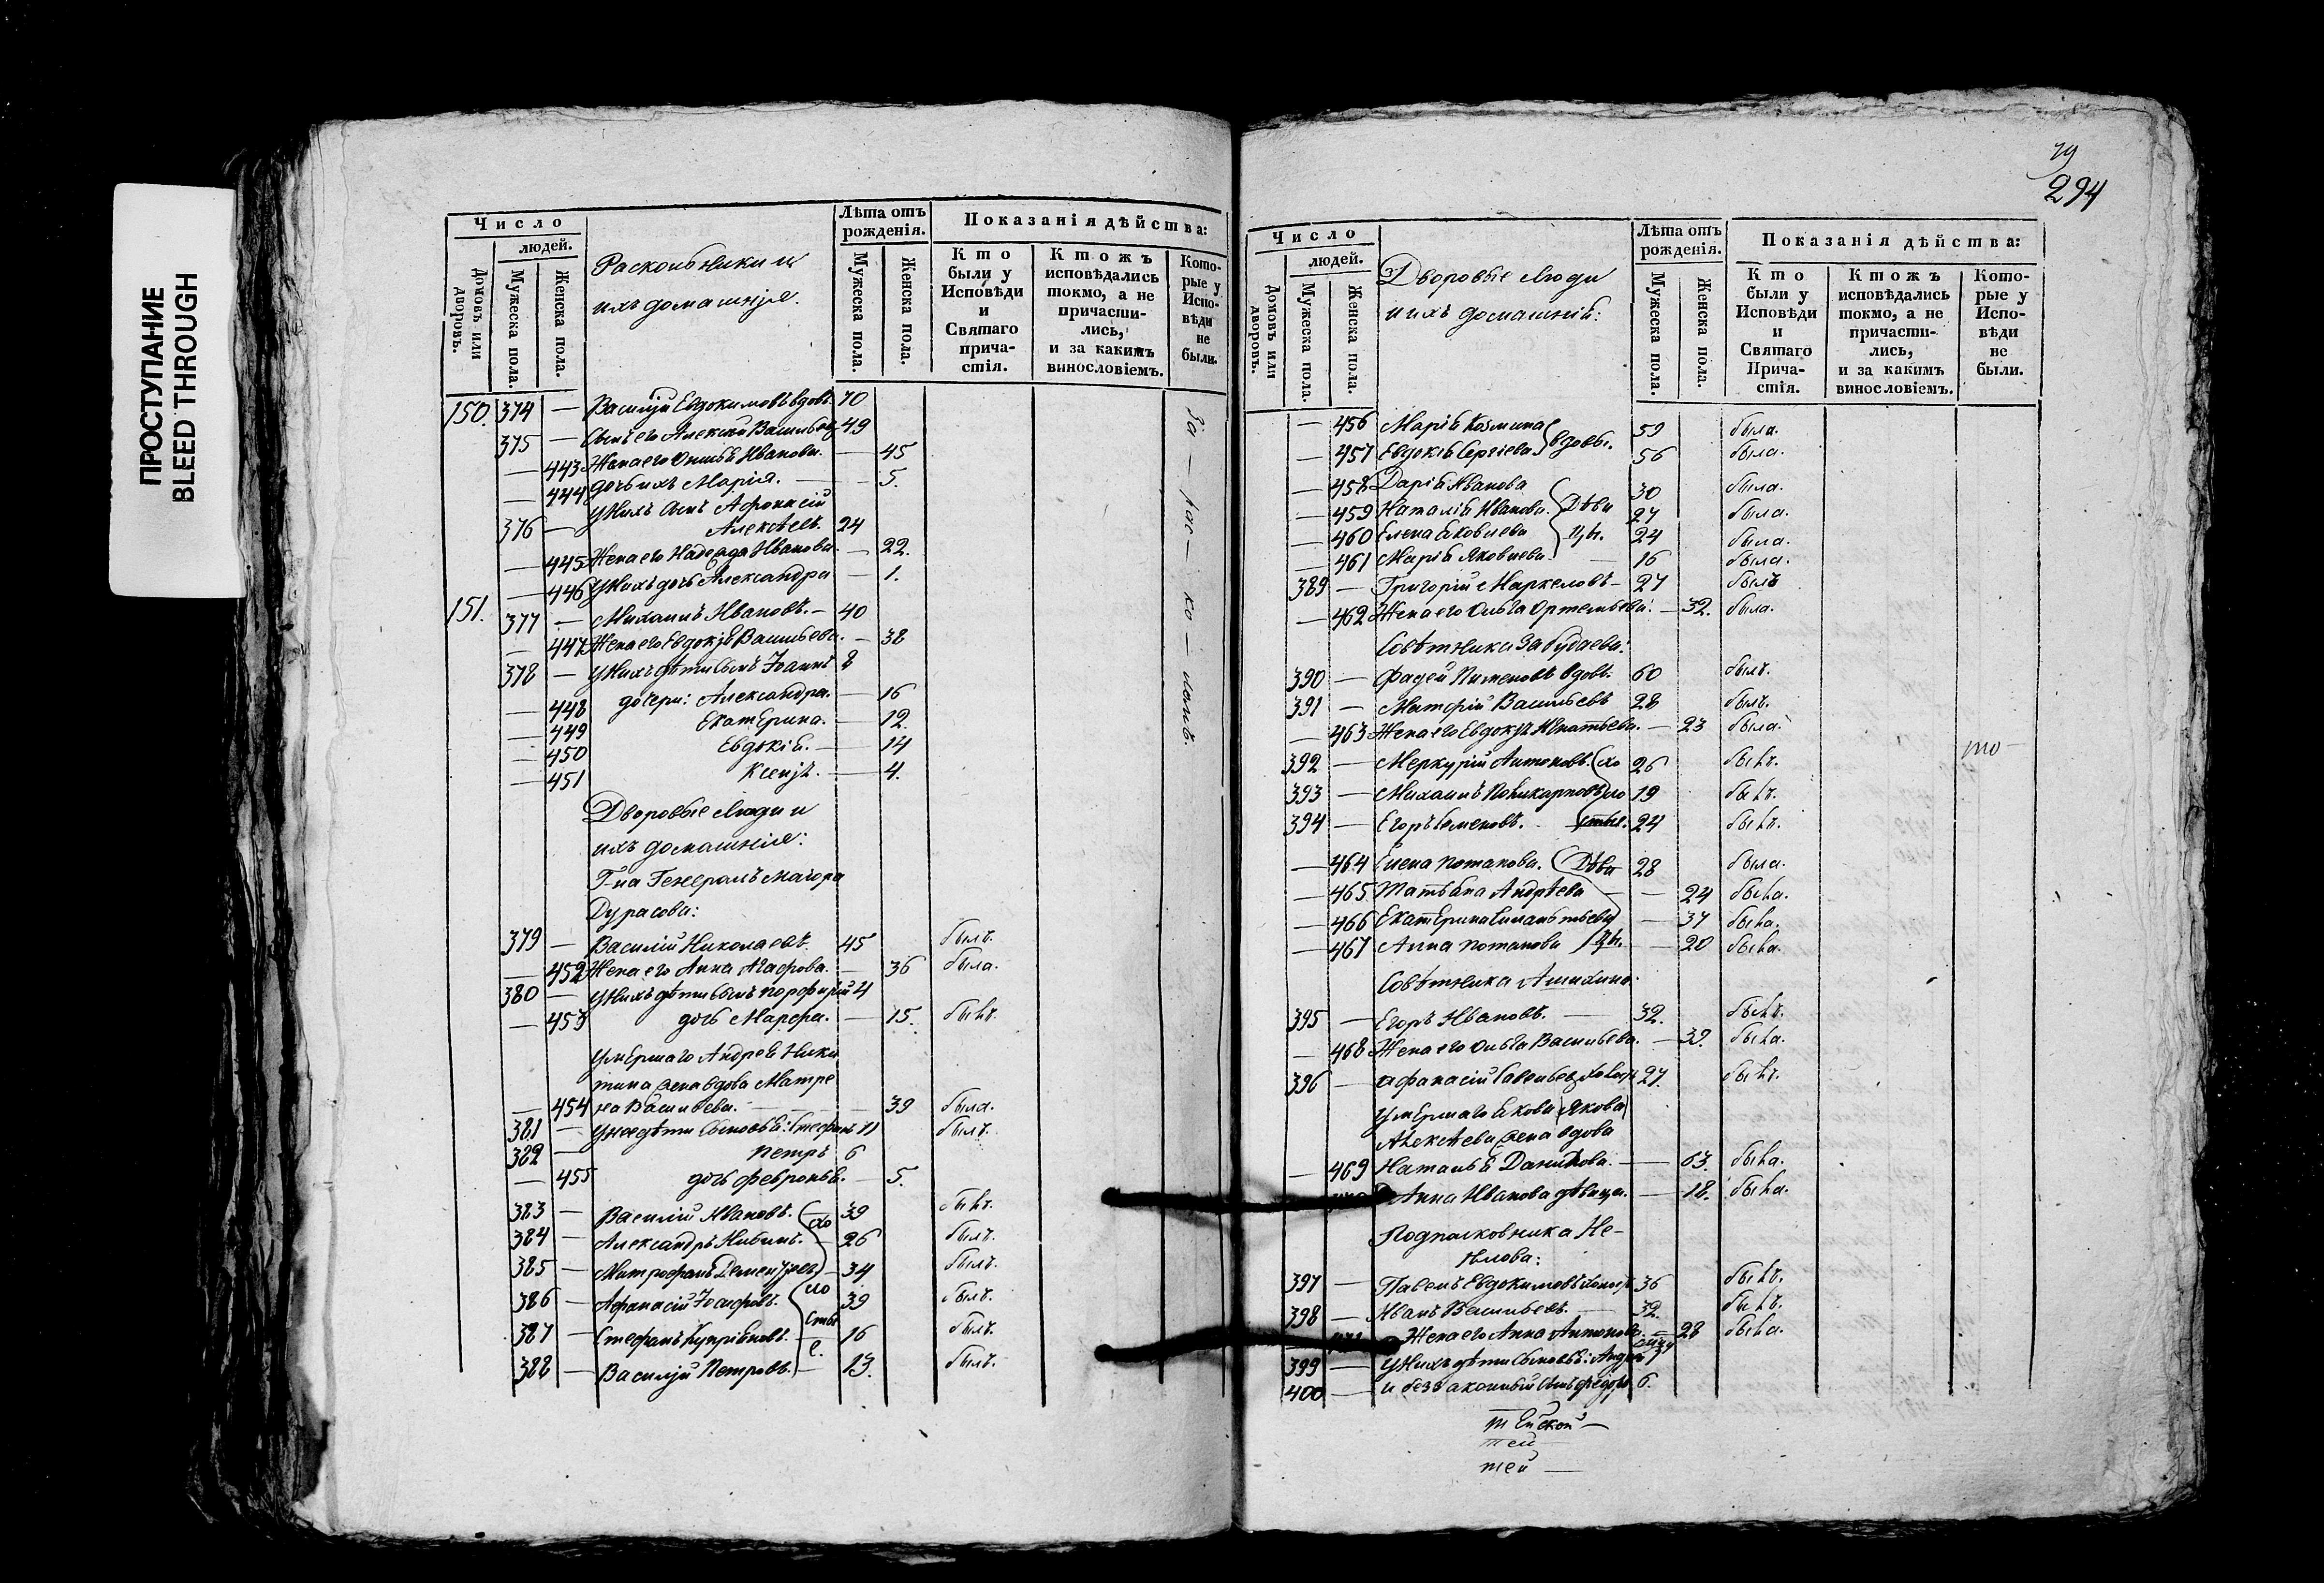 ПРОСТУПАНИЕ
BLEED THROUGH
Число
людей.
Домовъ или дворовъ.
Мужеска пола.
Женска пола.
Раскольники и
ихъ домашнія.
Лѣта отъ рожденія.
Мужеска пола.
Женска пола.
Показанія дѣйства:
Кто были у Исповѣди и Святаго причастія.
Ктожъ исповѣдались токмо, а не причастились, и за какимъ винословіемъ.
Которые у Исповѣди не были.
150. 374 — Василій Евдокимовъ вдовъ 70
375 — Сынъ его Алексѣй Васильевъ 49
— 443 Жена его Иванова. — 45
— 444 дочь ихъ Марія. — 5.
У нихъ сынъ Афонасій
376 — Алексѣевъ. 24
— 445 Жена его Надежда Иванова. — 22.
— 446 У нихъ дочь Александра — 1.
151. 377 — Михаилъ Ивановъ. — 40
— 447 Жена его Евдокія Васильева. — 38
378 — У нихъ дѣти сынъ Іоаннъ 8
— 448 дочери: Александра. — 16
— 449 Екатерина. — 12.
— 450 Евдокія. — 14
— 451 Ксенія. — 4.
За — рас — ко — ломъ.
Дворовые люди и
ихъ домашнія:
Г-на Генералъ Маіора
Дурасова:
379 — Василій Николаевъ. 45 былъ.
— 452 Жена его Анна Агафова. — 36 была.
380 — У нихъ дѣти сынъ Порфирій 4
— 453 дочь Марфа. — 15. былъ.
Умершаго Андрея Ники
тина жена вдова Матре
— 454 на Васильева. — 39 была.
381 — У нее дѣти сыновья: Стефанъ 11 былъ.
382 — Петръ 6
— 455 дочь Февронья. — 5.
383 — Василій Ивановъ. 39 былъ.
384 — Александръ 26 былъ.
385 — Митрофанъ 34 былъ.
386 — Афанасій Іосифовъ. 39 былъ.
387 — Стефанъ Купріяновъ. 16 былъ.
388 — Василій Петровъ. 13. былъ.
холостые.
294
Число
людей.
Домовъ или дворовъ.
Мужеска пола.
Женска пола.
Дворовые люди
и ихъ домашніе:
Лѣта отъ рожденія.
Мужеска пола.
Женска пола.
Показанія дѣйства:
Кто были у Исповѣди и Святаго Причастія.
Ктожъ исповѣдались токмо, а не причастились, и за какимъ винословіемъ.
Которые у Исповѣди не были.
— 456 Марія Козмина вдовы. 59 была.
— 457 Евдокія Сергіева 56 была.
— 458 Дарія Иванова 30 была.
— 459 Наталія Иванова. Дѣви 27 была.
— 460 Елена Яковлева цы. 24 была.
— 461 Марія Яковлева. — 16 была.
389 — Григорій Маркеловъ — 27 былъ
— 462 Жена его Ольга Ортемьева. — 32. была.
Совѣтника Забудаева:
390 — Фадей Пименовъ вдовъ. 60 былъ.
391 — Матфій Васильевъ 28 былъ.
— 463 Жена его Евдокія Игнатьева. — 23 была.
392 — Меркурій Антоновъ. хо 26 былъ.
393 — Михаилъ Поликарповъ ло 19 былъ.
394 — Егоръ Семеновъ. стые. 24 былъ.
— 464 Елена Потапова. Дѣви 28 была.
— 465 Татьяна Андреева — 24 была.
— 466 Екатерина — 37 была.
— 467 Анна Потапова цы. — 20 была.
Совѣтника
395 — Егоръ Ивановъ. — 32. былъ.
— 468 Жена его Ольга Васильева. — 39. была.
396 — Афанасій Савельевъ 27. былъ.
Умершаго Якова
Алексѣева жена вдова
— 469 Наталья Данилова. — 63. была.
Анна Иванова дѣвица. — 18. была.
Подполковника Не-
лова:
397 — Павелъ Евдокимовъ 36 былъ.
398 — Иванъ Васильевъ. — 32. былъ.
Жена его Анна Антонова. — 28 была.
399 — У нихъ дѣти сыновья: Андрей 7
400 — и беззаконный сынъ Федоръ 6.